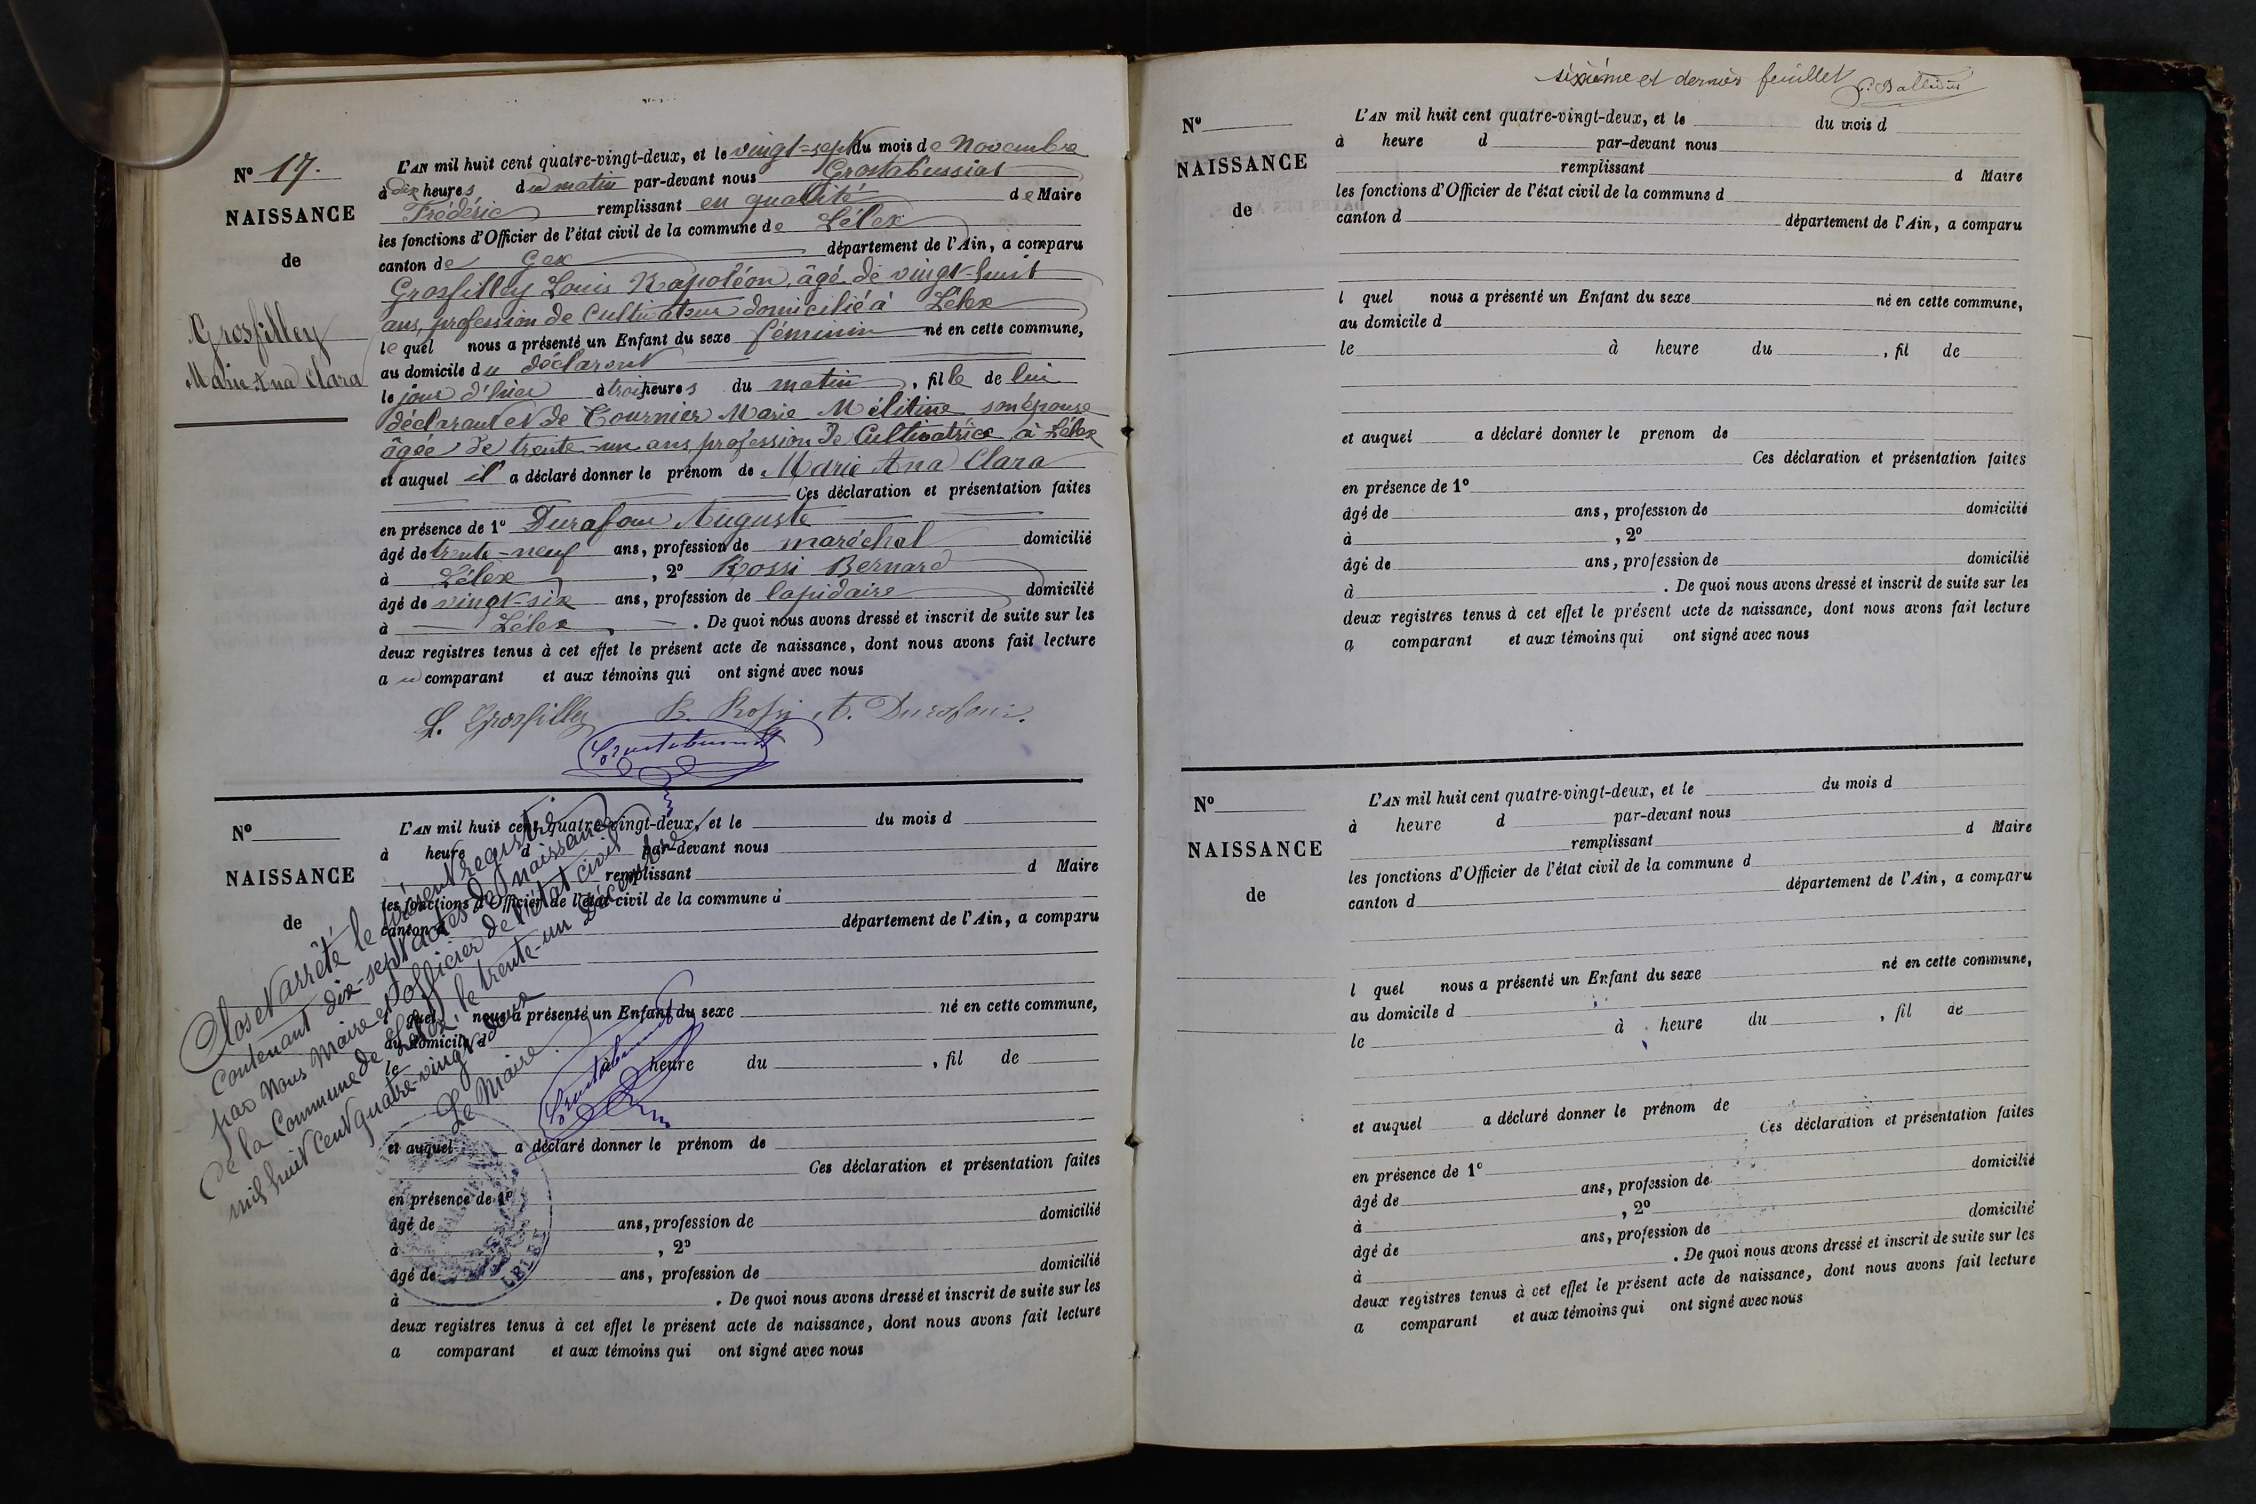 N° 17.
NAISSANCE
de
Grosfilley
Marie Ana Clara
L'AN mil huit cent quatre-vingt-deux, et le vingt-sept du mois de Novembre
à dix heures du matin par-devant nous Grostabussiat
Frédéric remplissant en qualité de Maire
les fonctions d'Officier de l'état civil de la commune de Lélex
canton de Gex département de l'Ain, a comparu
Grosfilley Louis Napoléon, âgé de vingt-huit
ans, profession de Cultivateur domicilié à Lélex
le quel nous a présenté un Enfant du sexe féminin né en cette commune,
au domicile du déclarant
le jour d'hier à trois heures du matin, fille de lui
déclarant et de Tournier Marie Mélitine son épouse
âgée de trente-un ans, profession de Cultivatrice à Lélex
et auquel il a déclaré donner le prénom de Marie Ana Clara
Ces déclaration et présentation faites
en présence de 1° Durafour Auguste
âgé de trente-neuf ans, profession de maréchal domicilié
à Lélex, 2° Rossi Bernard
âgé de vingt-six ans, profession de lapidaire domicilié
à Lélex. De quoi nous avons dressé et inscrit de suite sur les
deux registres tenus à cet effet le présent acte de naissance, dont nous avons fait lecture
au comparant et aux témoins qui ont signé avec nous
L. Grosfilley B. Rossi A. Durafour.
Grostabussiat
N°
NAISSANCE
de
L'AN mil huit cent quatre-vingt-deux, et le du mois d
à heure d par-devant nous
remplissant d Maire
les fonctions d'Officier de l'état civil de la commune d
canton d département de l'Ain, a comparu
l quel nous a présenté un Enfant du sexe né en cette commune,
au domicile d
le à heure du , fil de
et auquel a déclaré donner le prénom de
Ces déclaration et présentation faites
en présence de 1°
âgé de ans, profession de domicilié
à , 2°
âgé de ans, profession de domicilié
à . De quoi nous avons dressé et inscrit de suite sur les
deux registres tenus à cet effet le présent acte de naissance, dont nous avons fait lecture
a comparant et aux témoins qui ont signé avec nous
Clos et arrêté le présent registre
Contenant dix-sept actes de naissance
par Nous Maire et officier de l'état civil
de la Commune de Lélex, le trente-un Décembre
mil huit cent quatre-vingt deux
Le Maire
Grostabussiat
LELEX
sixième et dernier feuillet
N°
NAISSANCE
de
L'AN mil huit cent quatre-vingt-deux, et le du mois d
à heure d par-devant nous
remplissant d Maire
les fonctions d'Officier de l'état civil de la commune d
canton d département de l'Ain, a comparu
l quel nous a présenté un Enfant du sexe né en cette commune,
au domicile d
le à heure du , fil de
et auquel a déclaré donner le prenom de
Ces déclaration et présentation faites
en présence de 1°
âgé de ans, profession de domicilié
à , 2°
âgé de ans, profession de domicilié
à . De quoi nous avons dressé et inscrit de suite sur les
deux registres tenus à cet effet le présent acte de naissance, dont nous avons fait lecture
a comparant et aux témoins qui ont signé avec nous
N°
NAISSANCE
de
L'AN mil huit cent quatre-vingt-deux, et le du mois d
à heure d par-devant nous
remplissant d Maire
les fonctions d'Officier de l'état civil de la commune d
canton d département de l'Ain, a comparu
l quel nous a présenté un Enfant du sexe né en cette commune,
au domicile d
le à heure du , fil de
et auquel a déclaré donner le prénom de
Ces déclaration et présentation faites
en présence de 1°
âgé de ans, profession de domicilié
à , 2°
âgé de ans, profession de domicilié
à . De quoi nous avons dressé et inscrit de suite sur les
deux registres tenus à cet effet le présent acte de naissance, dont nous avons fait lecture
a comparant et aux témoins qui ont signé avec nous